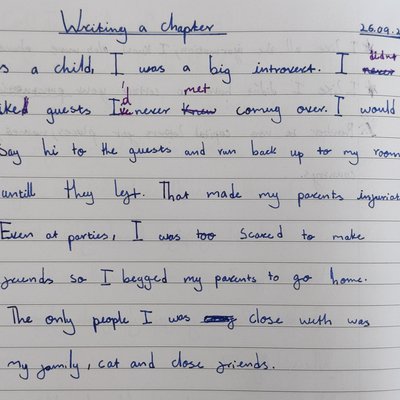 Writing a chapter 26.09.2
s a child, I was a big introvert. I didnt never
iked guests I'd ve never met knew coming over. I would
Say hi to the guests and run back up to my room
untill they left. That made my parents injuriat
Even at parties, I was too scared to make
friends so I begged my parents to go home.
The only people I was close with was
my family, cat and close friends.